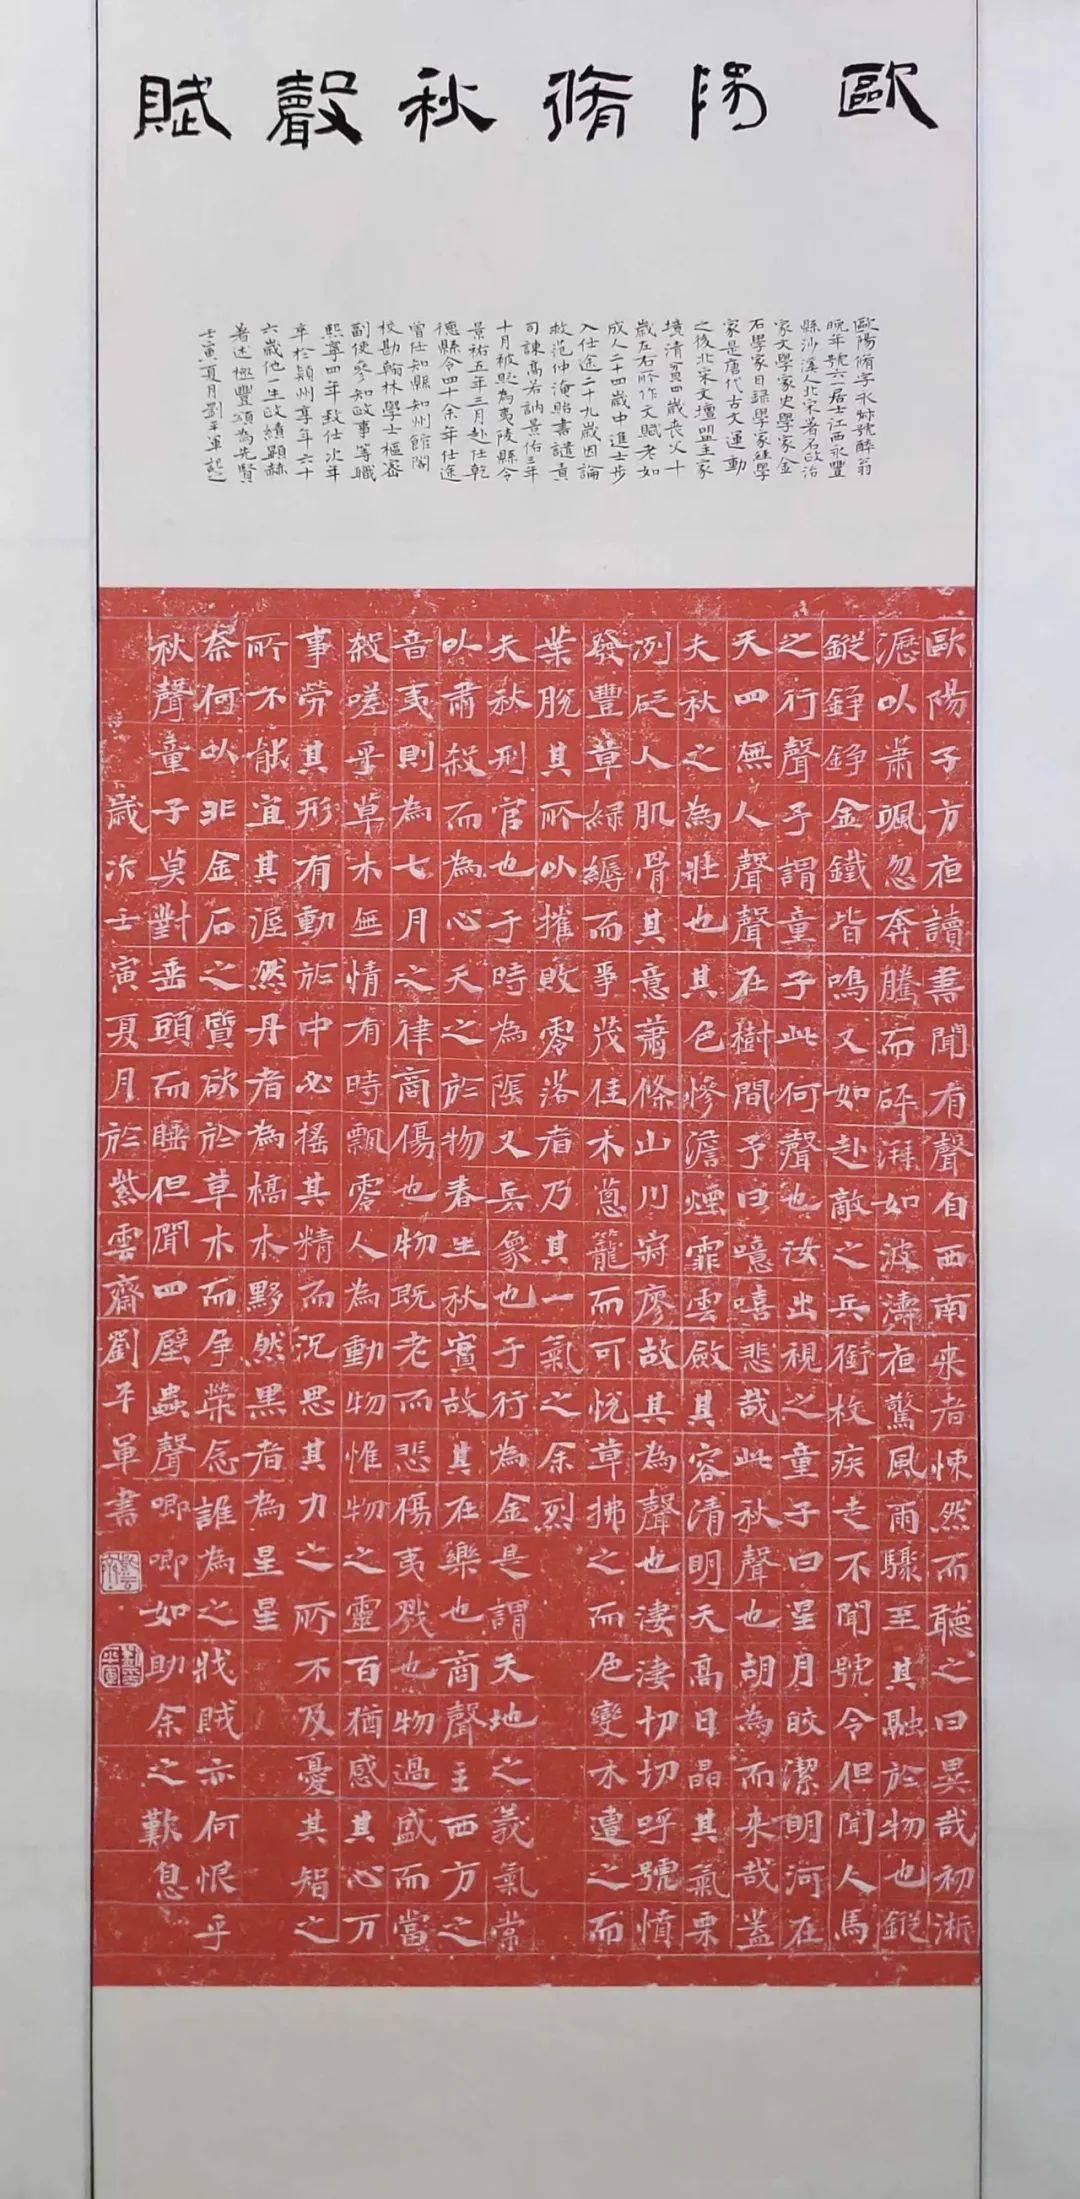 歐陽脩秋聲賦
歐陽脩字永叔號醉翁
晚年號六一居士江西永豐
縣沙溪人北宋著名政治
家文學家史學家金
石學家目録學家經學
家是唐代古文運動
之後北宋文壇盟主家
境清貧四歲喪父十
歲左右所作文賦老如
成人二十四歲中進士步
入仕途二十九歲因論
救范仲淹貽書譴責
司諫高若訥景佑三年
十月被貶為夷陵縣令
景祐五年三月赴任乾
德縣令四十余年仕途
曾任知縣知州館閣
校勘翰林學士樞密
副使參知政事等職
熙寧四年致仕次年
卒於潁州享年六十
六歲他一生政績顯赫
著述極豐頌為先賢
壬寅夏月劉平軍記之
歐陽子方夜讀書聞有聲自西南来者悚然而聽之曰異哉初淅
瀝以蕭颯忽奔騰而砰湃如波濤夜驚風雨驟至其融於物也鏦
鏦錚錚金鐵皆鳴又如赴敵之兵銜枚疾走不聞號令但聞人馬
之行聲予謂童子此何聲也汝出視之童子曰星月皎潔明河在
天四無人聲聲在樹間予曰噫嘻悲哉此秋聲也胡為而来哉蓋
夫秋之為壯也其色慘澹煙霏雲斂其容清明天高日晶其氣栗
冽砭人肌骨其意蕭條山川寂寥故其為聲也淒淒切切呼號憤
發豐草綠縟而爭茂佳木蔥籠而可悅草拂之而色變木遭之而
葉脫其所以摧敗零落者乃其一氣之余烈
夫秋刑官也于時為陰又兵象也于行為金是謂天地之義氣常
以肅殺而為心天之於物春生秋實故其在樂也商聲主西方之
音夷則為七月之律商傷也物既老而悲傷夷戮也物過盛而當
殺嗟乎草木無情有時飄零人為動物惟物之靈百猶感其心万
事勞其形有動於中必搖其精而況思其力之所不及憂其智之
所不能宜其渥然丹者為槁木黟然黑者為星星
奈何以非金石之質欲於草木而爭榮念誰為之戕賊亦何恨乎
秋聲童子莫對垂頭而睡但聞四壁蟲聲唧唧如助余之歎息
歲次壬寅夏月於紫雲齋劉平軍書